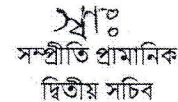 স্বাঃ
সম্প্রীতি প্রামানিক
দ্বিতীয় সচিব